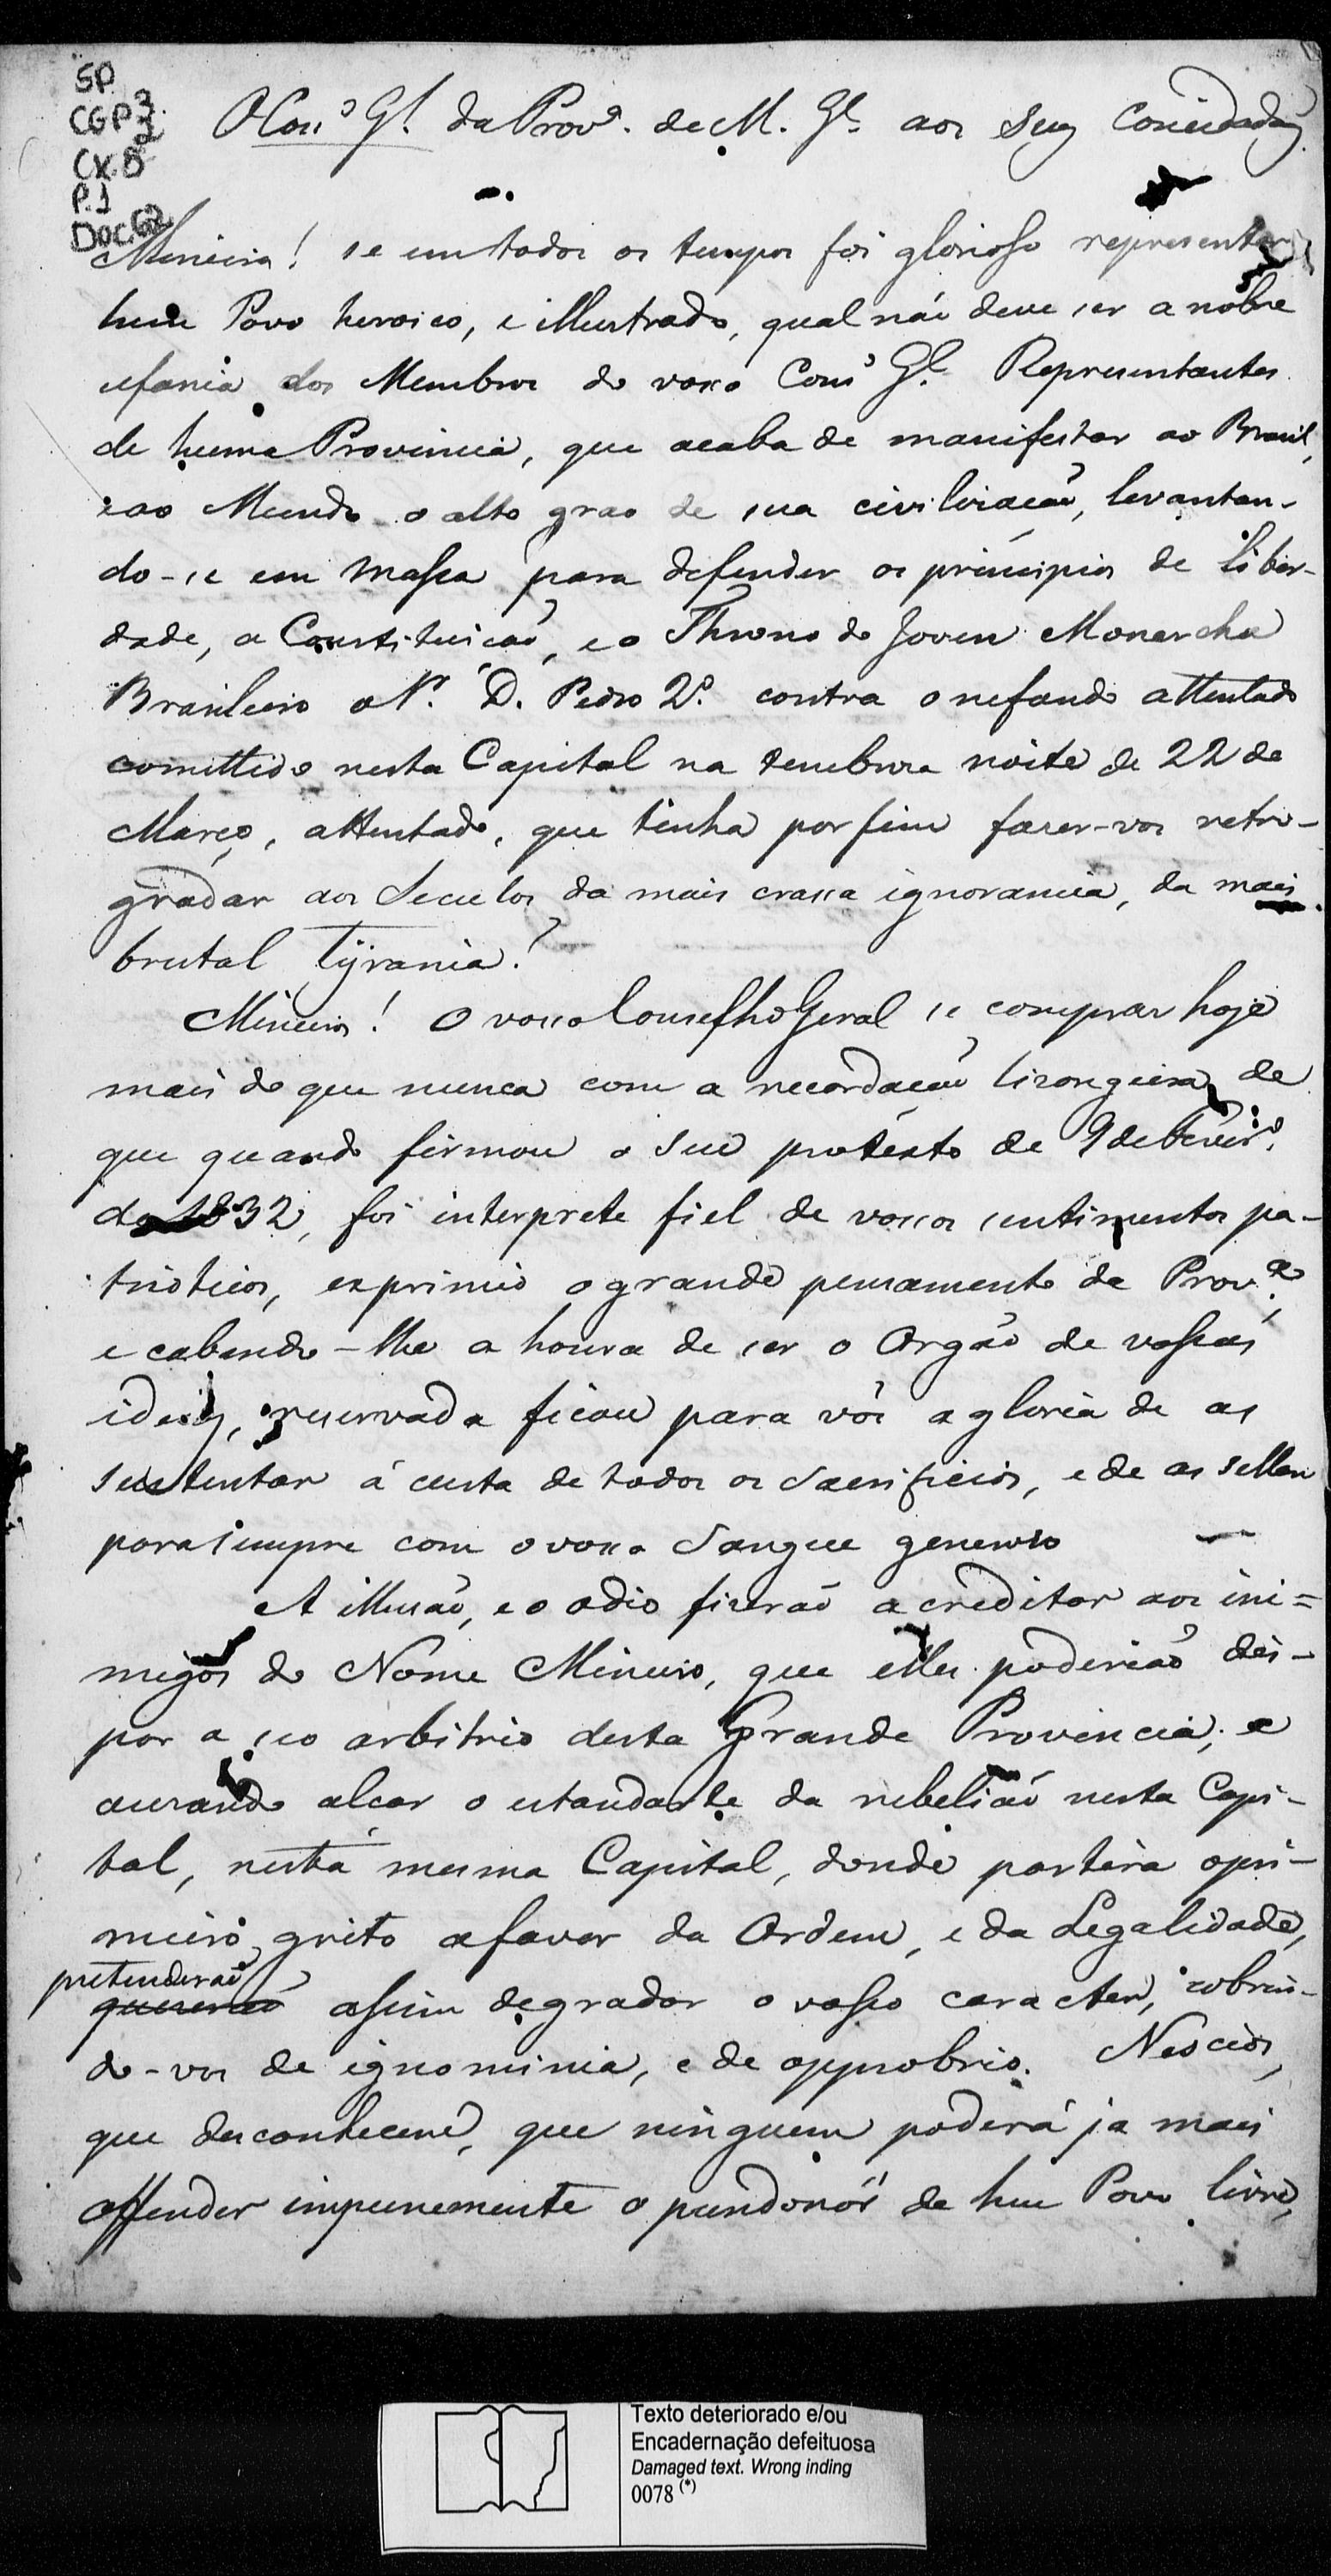 SP
CGP3
Cx. 8
P. 1
Doc. 62
O Con.º G.l da Prov.a de M. G.s aos seus Concidadãos
Mineiros! se em todos os tempos foi glorioso representar
hum Povo heroico, e illustrado, qual não deve ser a nobre
ufania dos Membros do vosso Con.º G.l Representantes
de huma Provincia, que acaba de manifestar ao Brasil,
e ao Mundo o alto grao de sua civilisação, levantan-
do-se em massa para defender os principios de Liber-
dade, a Constituição, e o Throno do Joven Monarcha
Brasileiro o Sr. D. Pedro 2.º contra o nefando attentado
comettido nesta Capital na tenebrosa noite de 22 de
Março, attentado, que tinha por fim fazer-vos retro-
gradar aos Seculos da mais crassa ignorancia, da mais
brutal tyrania!
Mineiros! O vosso Conselho Geral se compraz hoje
mais do que nunca com a recordação lisongeira de
que quando firmou o seu protesto de 9 de Fevereir.o
de 1832, foi interprete fiel de vossos sentimentos pa-
trioticos, exprimio o grande pensamento da Prov.a,
e cabendo-lhe a honra de ser o Orgão de vossas
ideias, reservada ficou para vós a gloria de as
sustentar á custa de todos os Sacrificios, e de as sellar
para sempre com o vosso Sangue generoso
A illusão, e o odio fizerão acreditar aos ini=
migos do Nome Mineiro, que elles poderião dis-
por a seo arbitrio desta Grande Provincia; e
ousando alçar o estandarte da rebelião nesta Capi-
tal, nesta mesma Capital, donde partira o pri-
meiro grito a favor da Ordem, e da Legalidade,
pretenderão
quizerão assim degradar o vosso caracter, cobrin-
do-vos de ignominia, e de opprobrio. Nescios,
que desconhecem, que ninguem poderá ja mais
offender impunemente o pundonor de hum Povo livre,
Texto deteriorado e/ou
Encadernação defeituosa
Damaged text. Wrong inding
0078 (*)